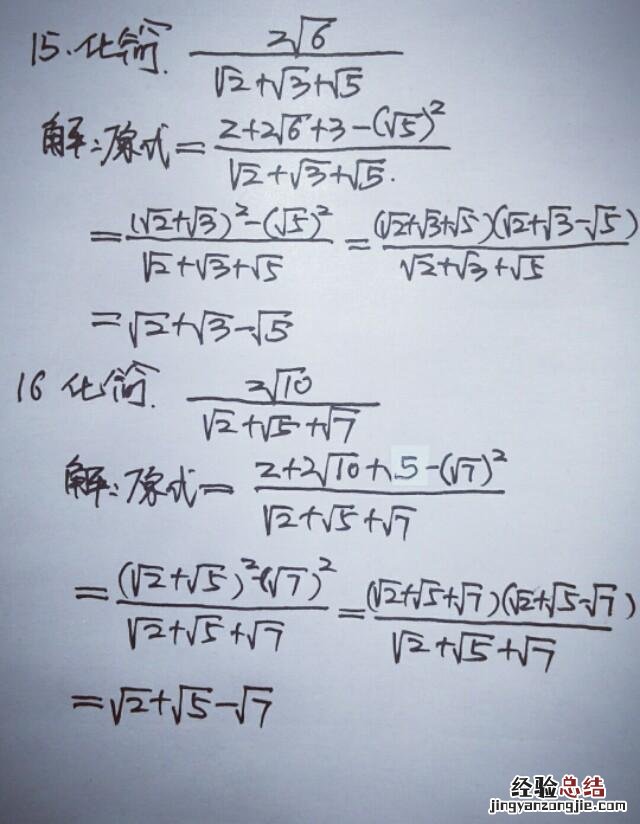 15.化简 2√6/(√2+√3+√5)
解:原式=(2+2√6+3-(√5)²)/(√2+√3+√5.)
=((√2+√3)²-(√5)²)/(√2+√3+√5)=((√2+√3+√5)(√2+√3-√5))/(√2+√3+√5)
=√2+√3-√5
16 化简. 2√10/(√2+√5+√7)
解:原式=(2+2√10+5-(√7)²)/(√2+√5+√7)
=((√2+√5)²-(√7)²)/(√2+√5+√7)=((√2+√5+√7)(√2+√5-√7))/(√2+√5+√7)
=√2+√5-√7
经验总结
jingyanzongjie.com